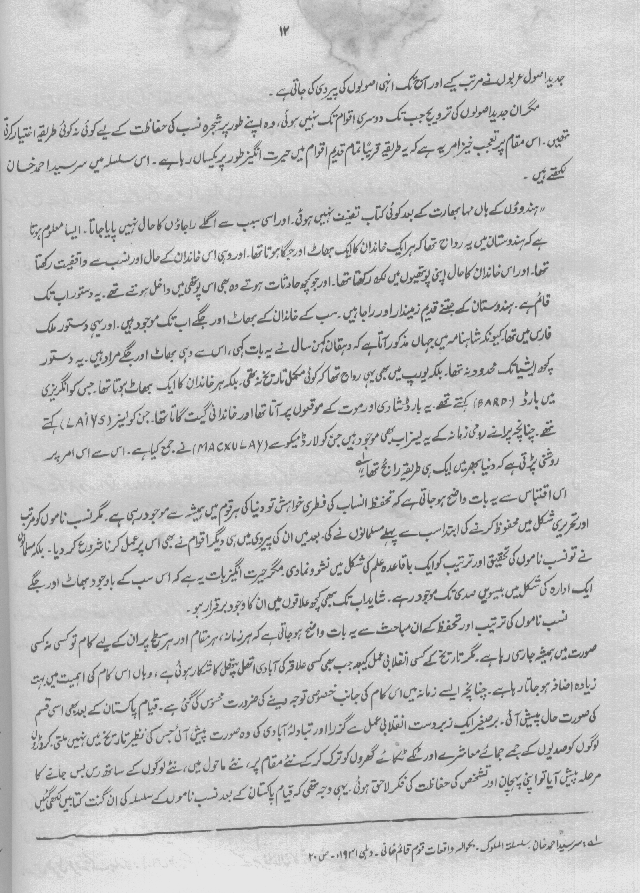 ۱۲
جدید اصول عربوں نے مرتب کیے اور آج تک انہی اصولوں کی پیروی کی جاتی ہے۔
مگر ان جدید اصولوں کی ترویج جب تک دوسری اقوام تک نہیں ہوئی، وہ اپنے طور پر شجرہ نسب کی حفاظت کے لیے کوئی نہ کوئی طریقہ اختیار کرتی
تھیں۔ اس مقام پر تعجب خیز امر یہ ہے کہ یہ طریقے قریباً تمام قدیم اقوام میں حیرت انگیز طور پر یکساں رہا ہے۔ اس سلسلہ میں سر سید احمد خان
لکھتے ہیں۔
"ہندوؤں کے ہاں مہا بھارت کے بعد کوئی کتاب تصنیف نہیں ہوئی۔ اور اسی سبب سے اگلے راجاؤں کا حال نہیں پایا جاتا۔ ایسا معلوم ہوتا
ہے کہ ہندوستان میں یہ رواج تھا کہ ہر ایک خاندان کا ایک بھاٹ اور جگا ہوتا تھا۔ اور وہی اس خاندان کے حال اور نسب سے واقفیت رکھتا
تھا۔ اور اس خاندان کا حال اپنی پوتھیوں میں لکھ رکھتا تھا۔ اور جو کچھ حادثات ہوتے وہ بھی اس پوتھی میں داخل ہوتے تھے۔ یہ دستور اب تک
قائم ہے۔ ہندوستان کے جتنے قدیم زمیندار اور راجا ہیں۔ سب کے خاندان کے بھاٹ اور جگے اب تک موجود ہیں۔ اور یہی دستور ملک
فارس میں تھا کیونکہ شاہنامہ میں جہاں مذکور آتا ہے کہ دہقان کہن سال نے یہ بات کہی، اس سے وہی بھاٹ اور جگے مراد ہیں۔ یہ دستور
کچھ ایشیا تک محدود نہ تھا۔ بلکہ یورپ میں بھی یہی رواج تھا کہ کوئی مکمل تاریخ نہ تھی۔ بلکہ ہر خاندان کا ایک بھاٹ ہوتا تھا۔ جس کو انگریزی
میں بارڈ (BARD) کہتے تھے۔ یہ بارڈ شادی اور موت کے موقعوں پر آتا تھا اور خاندانی گیت گاتا تھا۔ جن کو لیز (LAIYS) کہتے
تھے۔ چنانچہ پرانے رومی زمانہ کے یہ لیز اب بھی موجود ہیں جن کو لارڈ میکولے (MACKULAY) نے جمع کیا ہے۔ اس سے اس امر پر
روشنی پڑتی ہے کہ دنیا بھر میں ایک ہی طریقہ رائج تھا"۔ لے
اس اقتباس سے یہ بات واضح ہو جاتی ہے کہ تحفظ انساب کی فطری خواہش تو دنیا کی ہر قوم میں ہمیشہ سے موجود رہی ہے۔ مگر نسب ناموں کو مرتب
اور تحریری شکل میں محفوظ کرنے کی ابتدا سب سے پہلے مسلمانوں نے کی۔ بعد میں ان کی پیروی میں ہی دیگر اقوام نے بھی اس پر عمل کرنا شروع کر دیا۔ بلکہ مسلمانوں
نے تو نسب ناموں کی تحقیق اور ترتیب کو ایک باقاعدہ علم کی شکل میں نشو و نما دی۔ مگر حیرت انگیز بات یہ ہے کہ اس سب کے باوجود بھاٹ اور جگے
ایک ادارہ کی شکل میں بیسویں صدی تک موجود رہے۔ شاید اب تک بھی کچھ علاقوں میں ان کا وجود برقرار ہو۔
نسب ناموں کی ترتیب اور تحفظ کے ان مباحث سے یہ بات واضح ہو جاتی ہے کہ ہر زمانہ، ہر مقام اور ہر سطح پر ان کے لیے کام تو کسی نہ کسی
صورت میں ہمیشہ جاری رہا ہے۔ مگر تاریخ کے کسی انقلابی عمل کے بعد جب بھی کسی علاقہ کی آبادی اتھل پتھل کا شکار ہوئی ہے، وہاں اس کام کی اہمیت میں بہت
زیادہ اضافہ ہو جاتا رہا ہے۔ چنانچہ ایسے زمانہ میں اس کام کی جانب خصوصی توجہ دینے کی ضرورت محسوس کی گئی ہے۔ قیام پاکستان کے بعد بھی اسی قسم
کی صورت حال پیش آئی۔ برصغیر ایک زبردست انقلابی عمل سے گزرا اور تبادلہ آبادی کی وہ صورت پیش آئی جس کی نظیر تاریخ میں نہیں ملتی۔ کروڑوں
لوگوں کو صدیوں کے جمے جمائے معاشرے اور ٹکے ٹکائے گھروں کو ترک کر کے نئے مقام پر، نئے ماحول میں، نئے لوگوں کے ساتھ رس بس جانے کا
مرحلہ پیش آیا تو اپنی پہچان اور تشخص کی حفاظت کی فکر لاحق ہوئی۔ یہی وجہ تھی کہ قیام پاکستان کے بعد نسب ناموں کے سلسلہ کی ان گنت کتابیں لکھی گئیں
لے: سر سید احمد خان۔ سلسلۃ الملوک۔ بحوالہ واقعات قوم قائم خانی۔ دہلی ۱۹۳۱ء۔ ص ۲۰